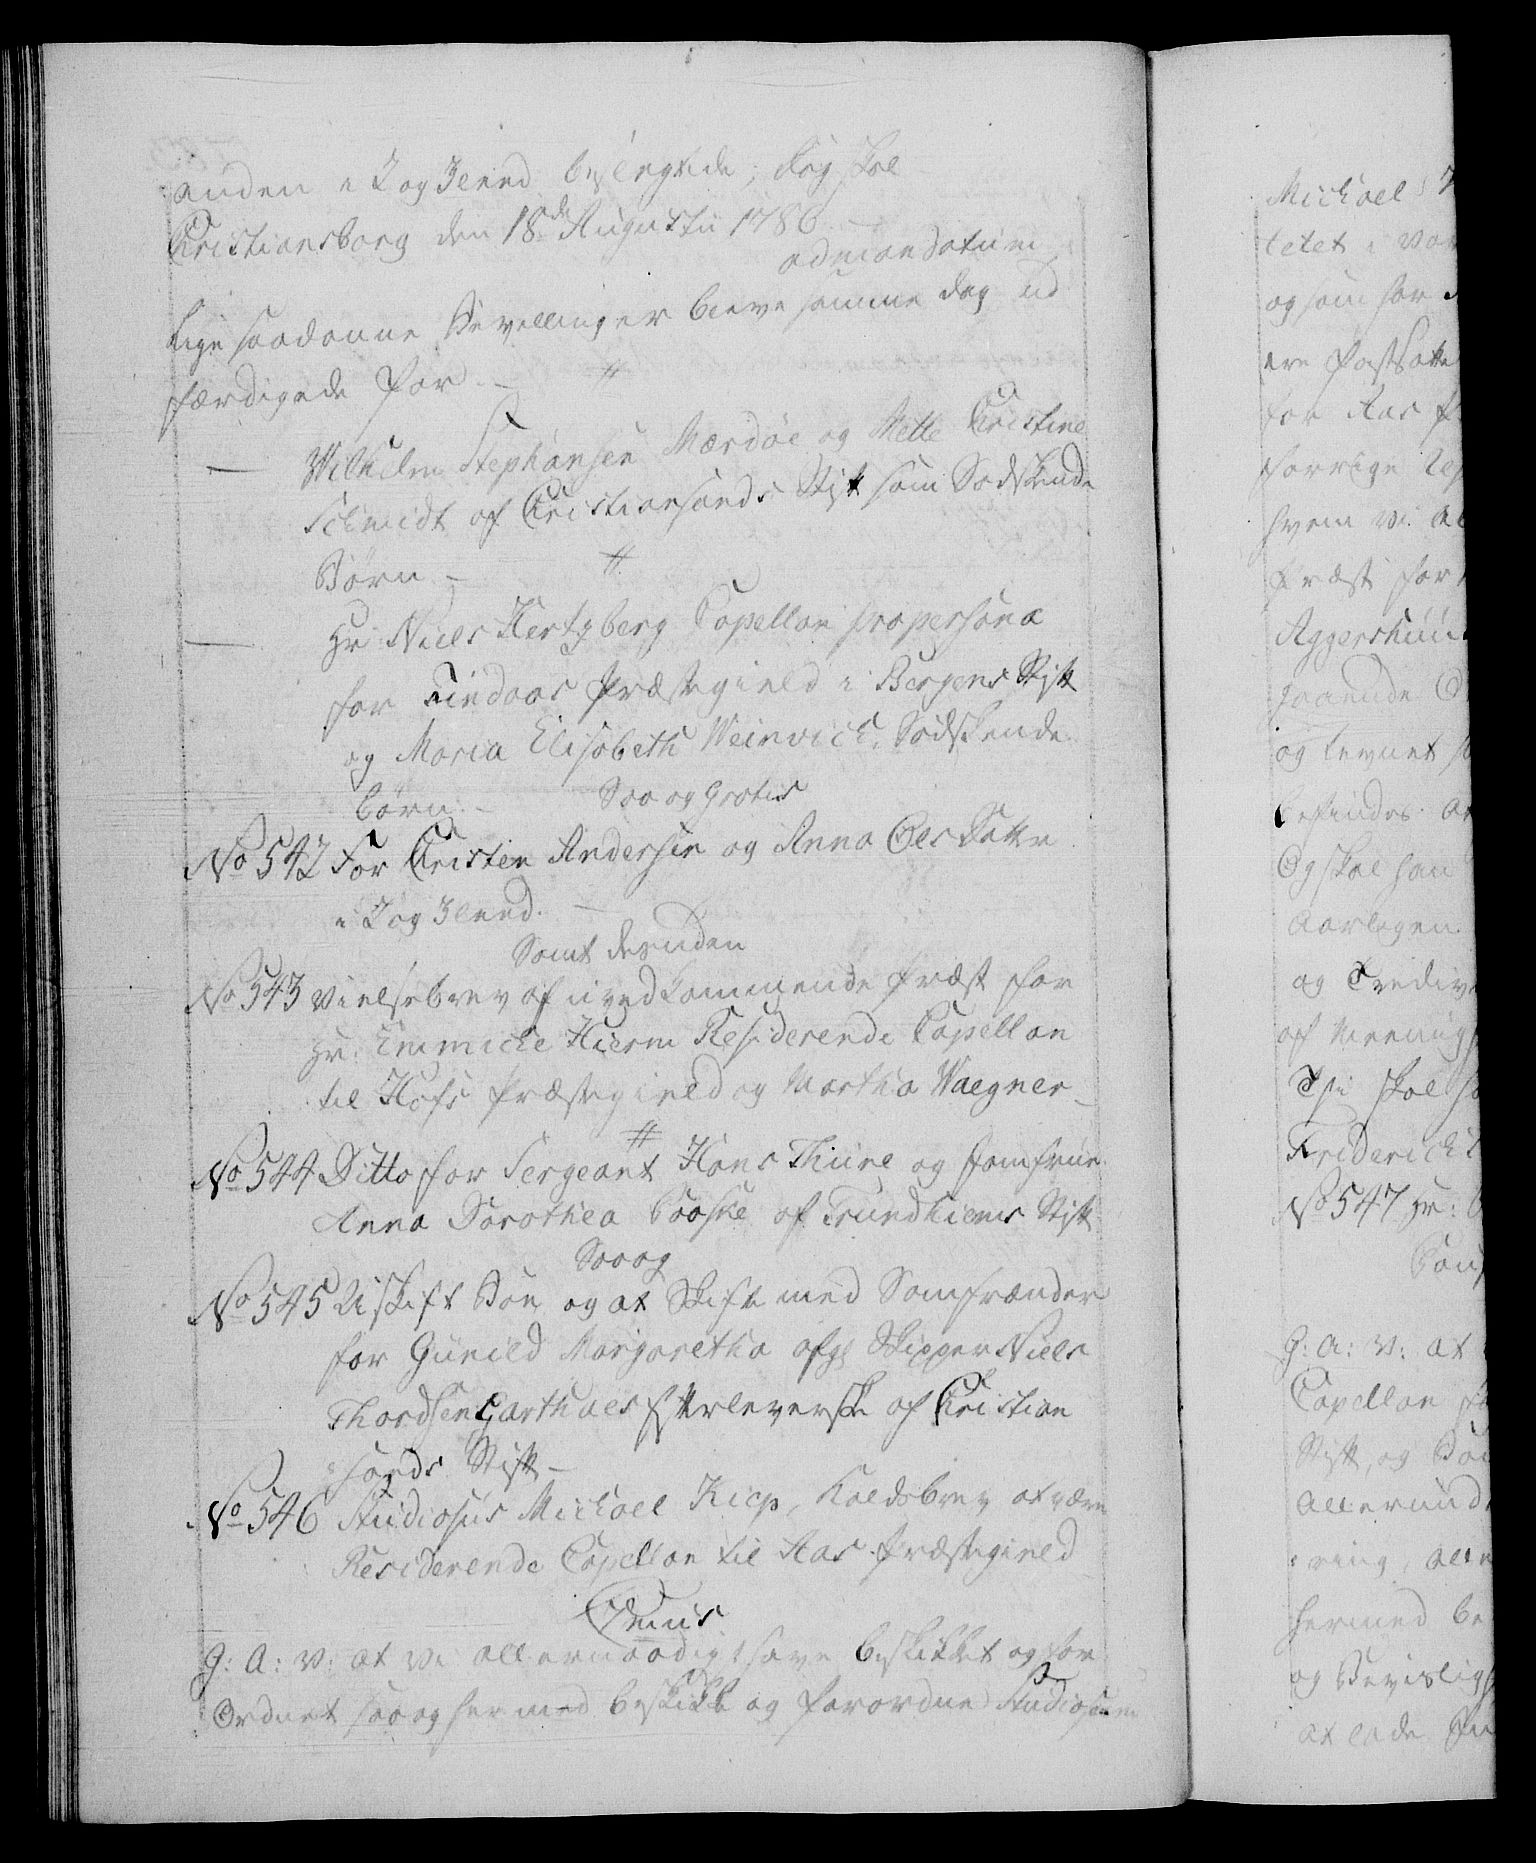 anden i 2 og 3 Leed beslegtede, dog skal
Christiansborg den 18de Augustii 1786
admandatum
Lige saadanne Bevellinger bleve samme dag ud
færdigede for. –
Wilhelm Stephansen Mærdøe og Mette Christine
Schmidt af Christiansands Stift som Sødskende
Børn –
Hr: Niels Hertzberg Capellan propersona
for Lindaas Præstegield i Bergens Stift
og Maria Elisabeth Weinvich, Sødskende
børn. –
Saa og Gratis
No 542 For Christen Andersen og Anna Oles Datter
i 2 og 3 Leed. –
Samt desuden
No 543 Vielsebrev af uvedkommende Præst for
Hr: Emmiche Hierm Residerende Capellan
til Hofs Præstegield og Martha Wægner –
No 544 Ditto for Sergeant Hans Thüre og Jomfrue
Anna Dorothea Baaske af Trundhiems Stift
Saa og
No 545 Uskift Boe og at Skifte med Samfrænder
for Gunild Margaretha afg: Skipper Niels
Thordsen Garthaes Efterleverske af Christian
sands Stift –
No 546 Studiosus Michael Kiep, Kaldsbrev at være
Residerende Capellan til Aas Præstegield
G: A: V: at Vi allernaadigst have beskikket og for
Ordnet saa og hermed beskikke og forordne Studiosum
Michael
tetet i vor
og som for
ere Postsatte
for Aas
forrige
hvem vi
Præst for
Aggershuus
og levnet
befindes
Og skal han
Aarligen
og Tredive
af Menning
Thi skal
Friderich
No 547 Hr:
G: A: V: at
Capellan
Stift, og
Allerund
hermed be
og Bevislig
at lade